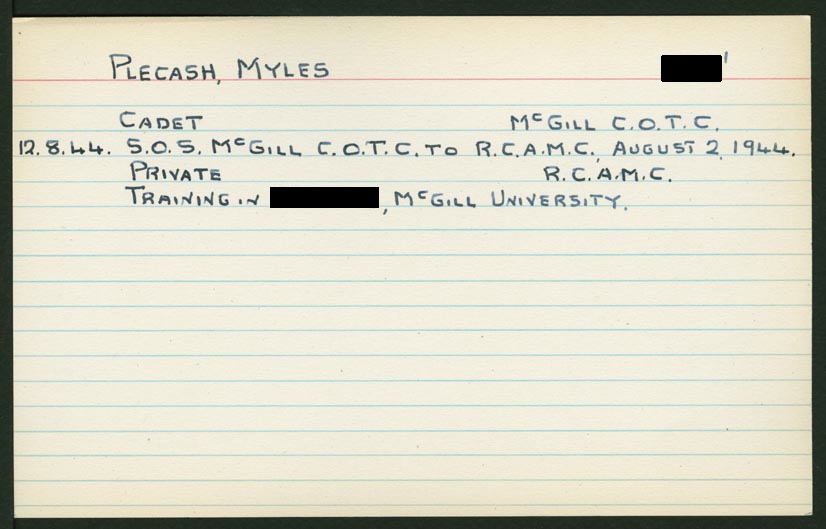 PLECASH, MYLES
CADET McGILL C.O.T.C.
12.8.44. S.O.S. McGILL C.O.T.C. TO R.C.A.M.C., AUGUST 2, 1944.
PRIVATE R.C.A.M.C.
TRAINING IN , McGILL UNIVERSITY.